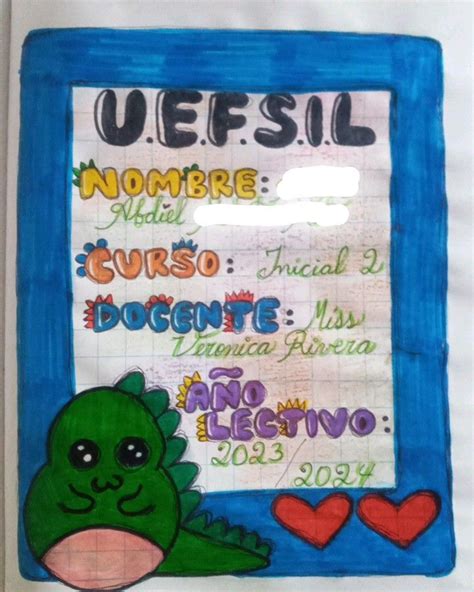 U.E.F.S.I.L
NOMBRE:
Abdiel
CURSO: Inicial 2
DOCENTE: Miss
Veronica Rivera
AÑO
LECTIVO:
2023/
2024